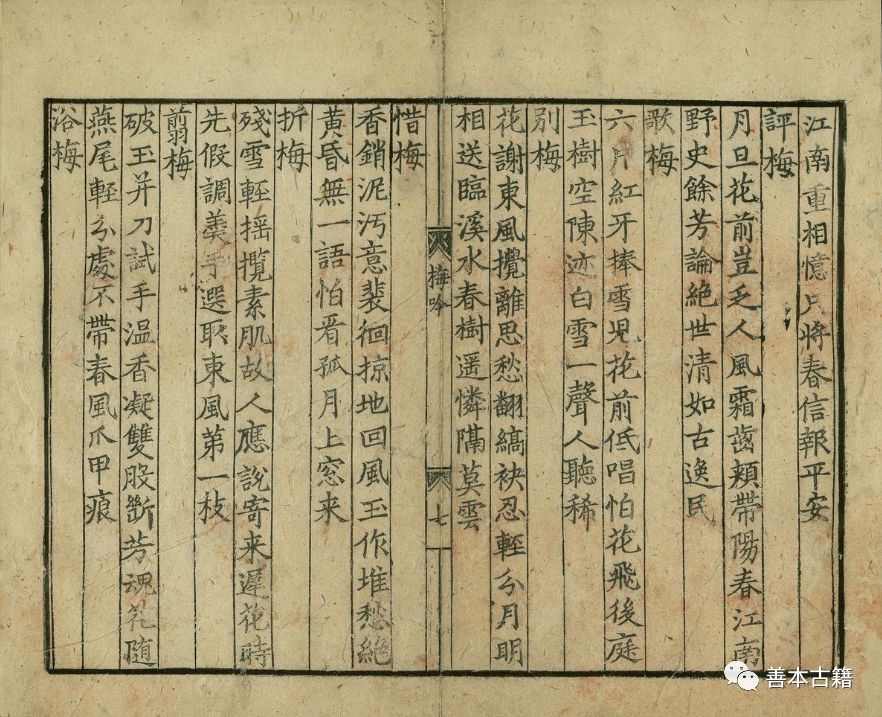 江南重相憶只將春信報平安
評梅
月旦花前豈乏人風霜齒頰帶陽春江南
野史餘芳論絕世清如古逸民
歌梅
六片紅牙捧雪児花前低唱怕花飛後庭
玉樹空陳迹白雪一聲人聽稀
別梅
花謝東風攪離思愁翻縞袂忍輕分月明
相送臨溪水春樹遥憐隔莫雲
梅吟
七
惜梅
香銷泥汚意裴徊掠地回風玉作堆愁絶
黄昏無一語怕看孤月上窓来
折梅
殘雪輕揺攬素肌故人應說寄来遲花時
先假調羹手選取東風第一枝
翦梅
破玉并刀試手温香凝雙股斷芳魂花随
燕尾輕分處不帶春風爪甲痕
浴梅
善本古籍